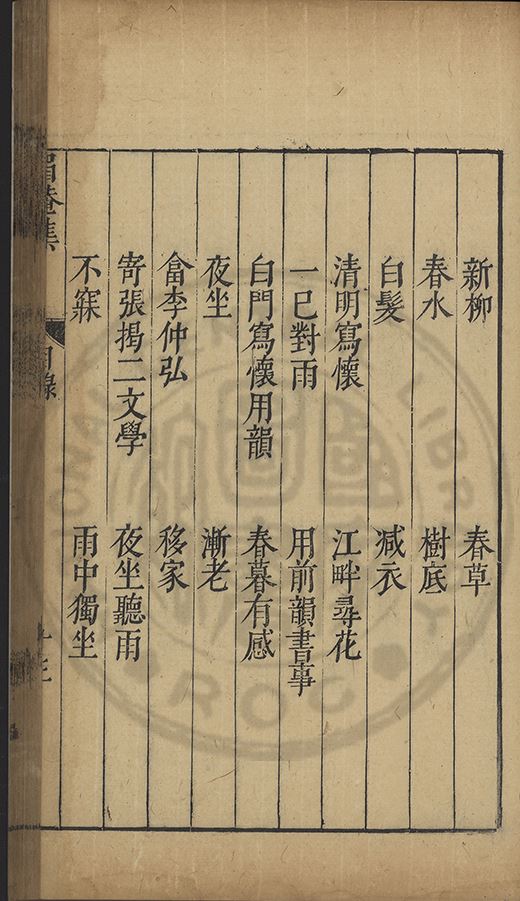 新柳 春草
春水 樹底
白髮 减衣
清明寫懷 江畔尋花
一巳對雨 用前韻書事
白門寫懷用韻 春暮有感
夜坐 漸老
畣李仲弘 移家
寄張揭二文學 夜坐聽雨
不寐 雨中獨坐
目錄